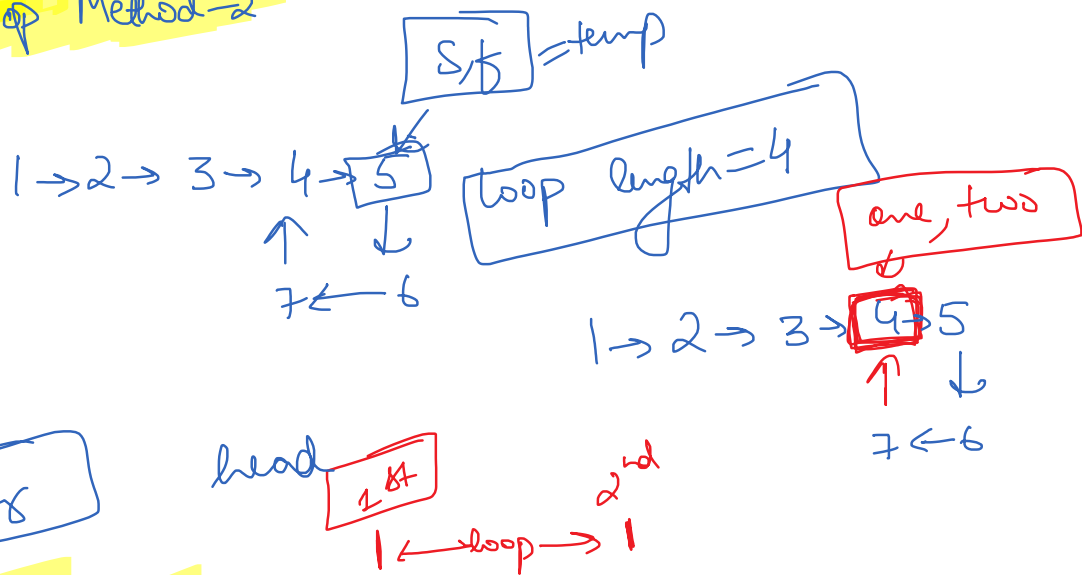 op Method-2
s,f = temp
1 → 2 → 3 → 4 → 5
↑ ↓
7 ← 6
loop length = 4
one, two
1 → 2 → 3 → 4 → 5
↑ ↓
7 ← 6
head
1st 2nd
1 ← loop → 1